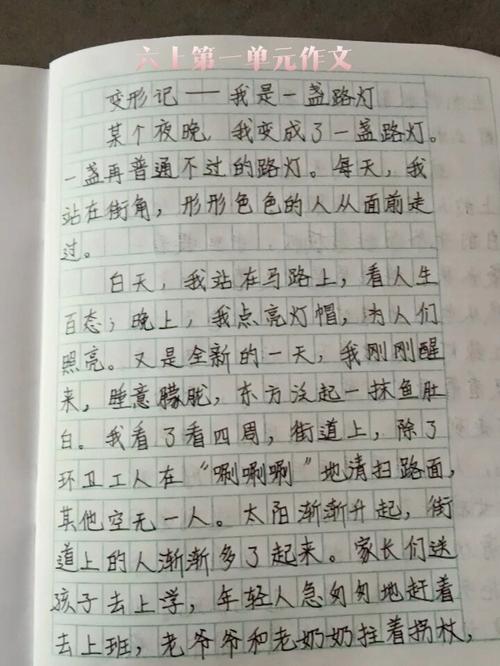 六上第一单元作文
变形记——我是一盏路灯
某个夜晚,我变成了一盏路灯。
一盏再普通不过的路灯。每天,我
站在街角,形形色色的人从面前走
过。
白天,我站在马路上,看人生
百态;晚上,我点亮灯帽,为人们
照亮。又是全新的一天,我刚刚醒
来,睡意朦胧,东方泛起一抹鱼肚
白。我看了看四周,街道上,除了
环卫工人在“唰唰唰”地清扫路面,
其他空无一人。太阳渐渐升起,街
道上的人渐渐多了起来。家长们送
孩子去上学,年轻人急匆匆地赶着
去上班,老爷爷和老奶奶拄着拐杖,